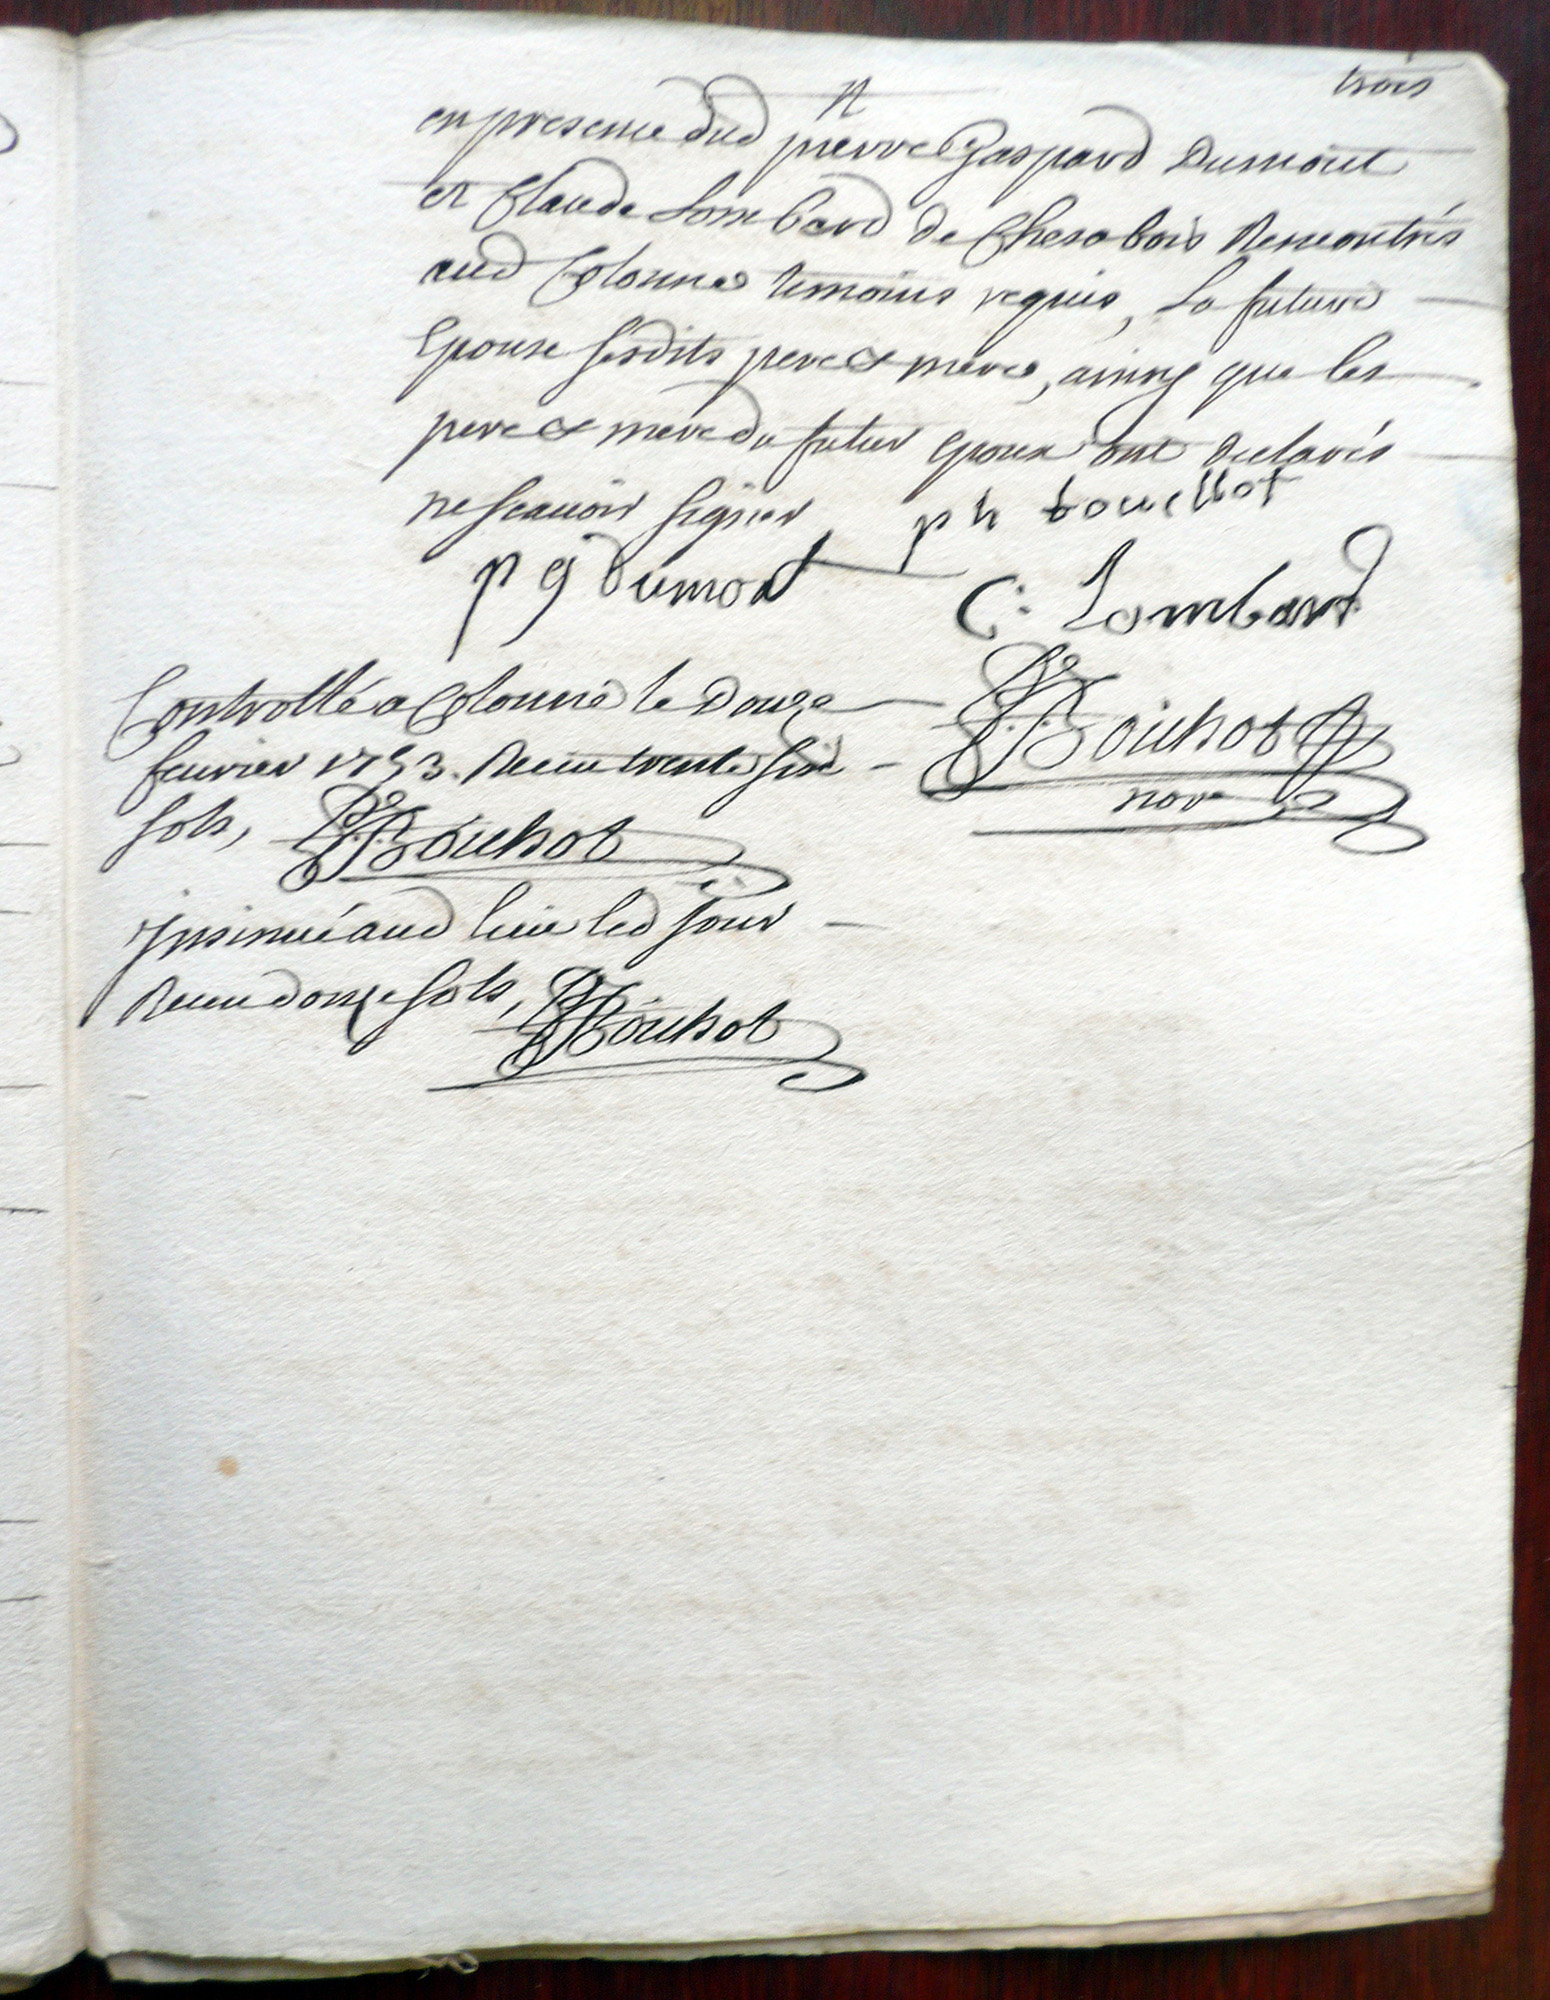 trois
en presence dud pierre Gaspard Dumont
et Claude Lombard de Chesabois Rencontrés
aud Colonne temoins requis, La future
Epouse sesdits pere & mere, ainsy que les
pere & mere du futur Epoux ont declarés
ne scauoir signer ph bouellot
p g dumont C: Lombard
Controllé a Colonne le Douze
feurier 1753. Receu trente six
sols, Bouhot
Bouhot
nore
Jnsinué aud lieu led jour
Receu douze sols, Bouhot